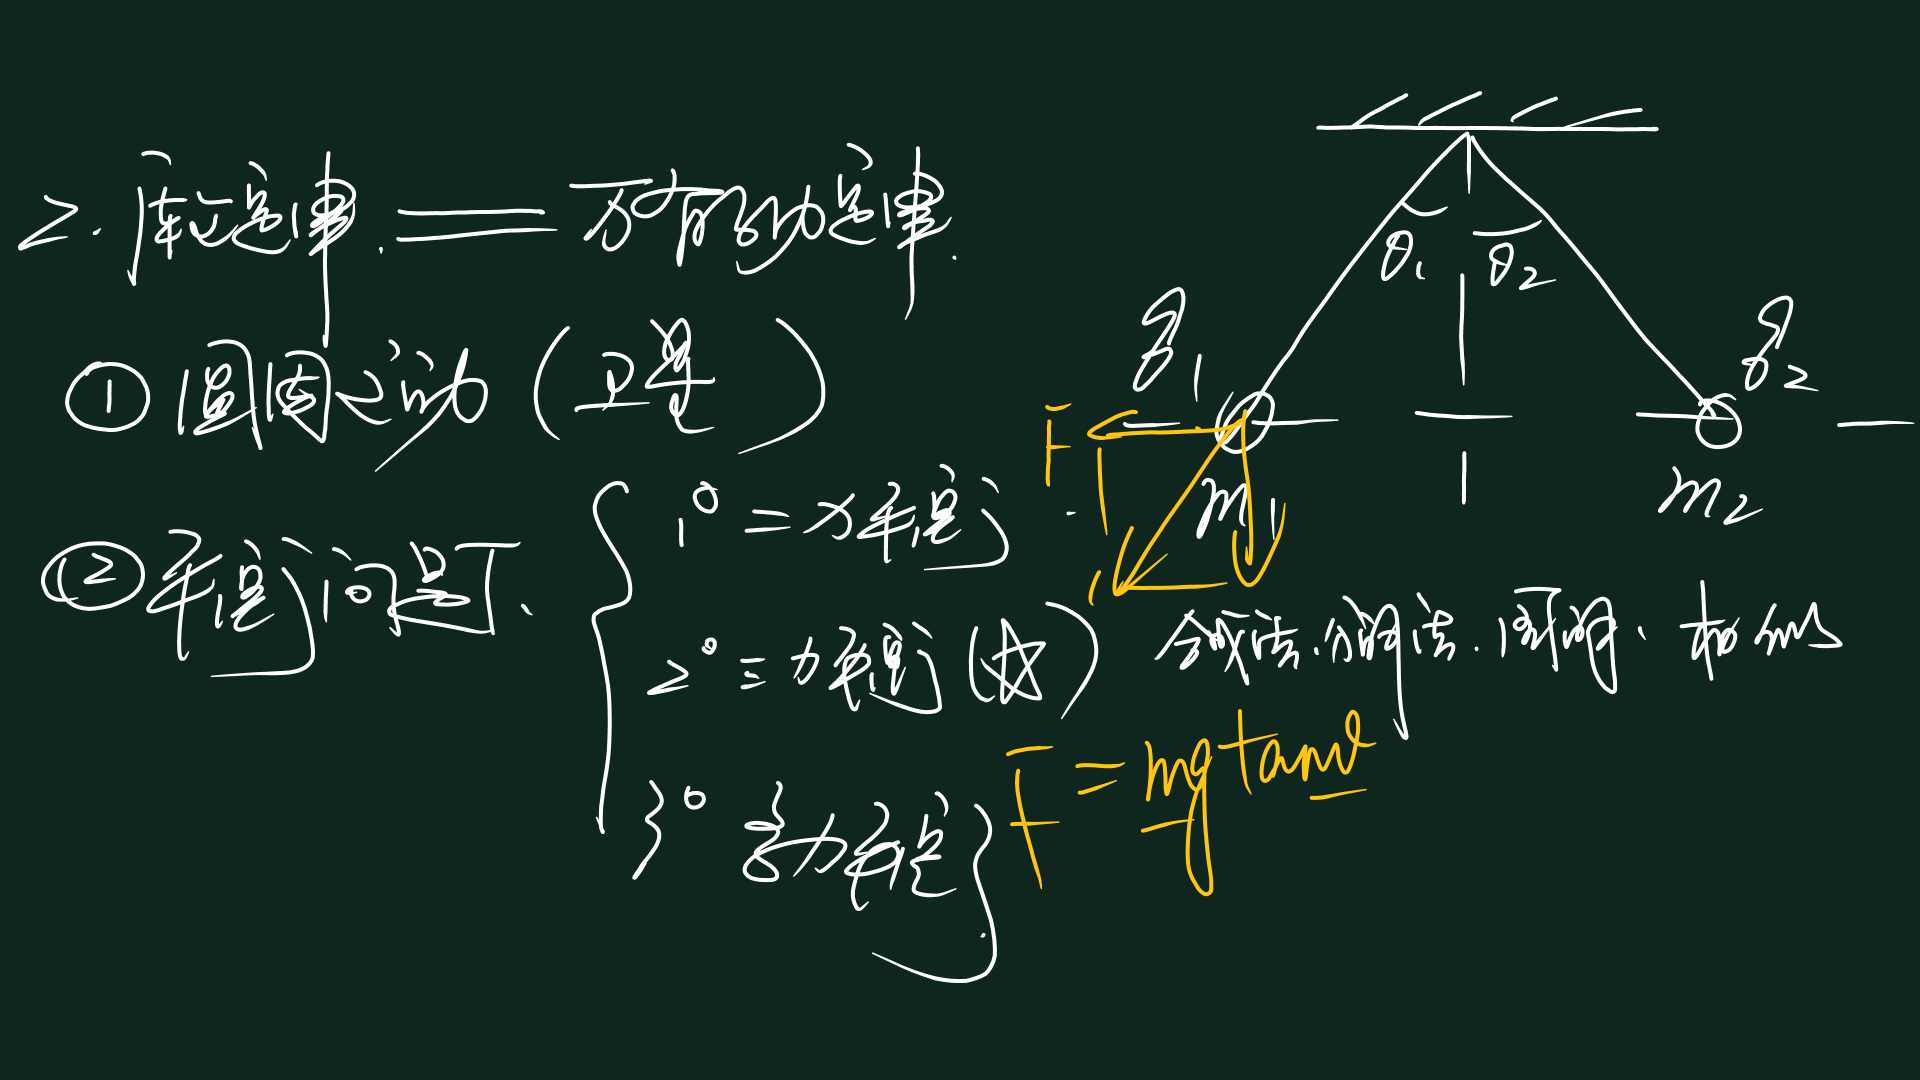 2. 库仑定律. = 万有引力定律.
① 圆周运动 (卫星)
② 平衡问题.
1° 二力平衡.
2° 三力平衡 (☆) 合成法.分解法.图解、相似
3° 多力平衡
θ₁ θ₂
q₁ q₂
F
m₁ m₂
F = mg tanθ